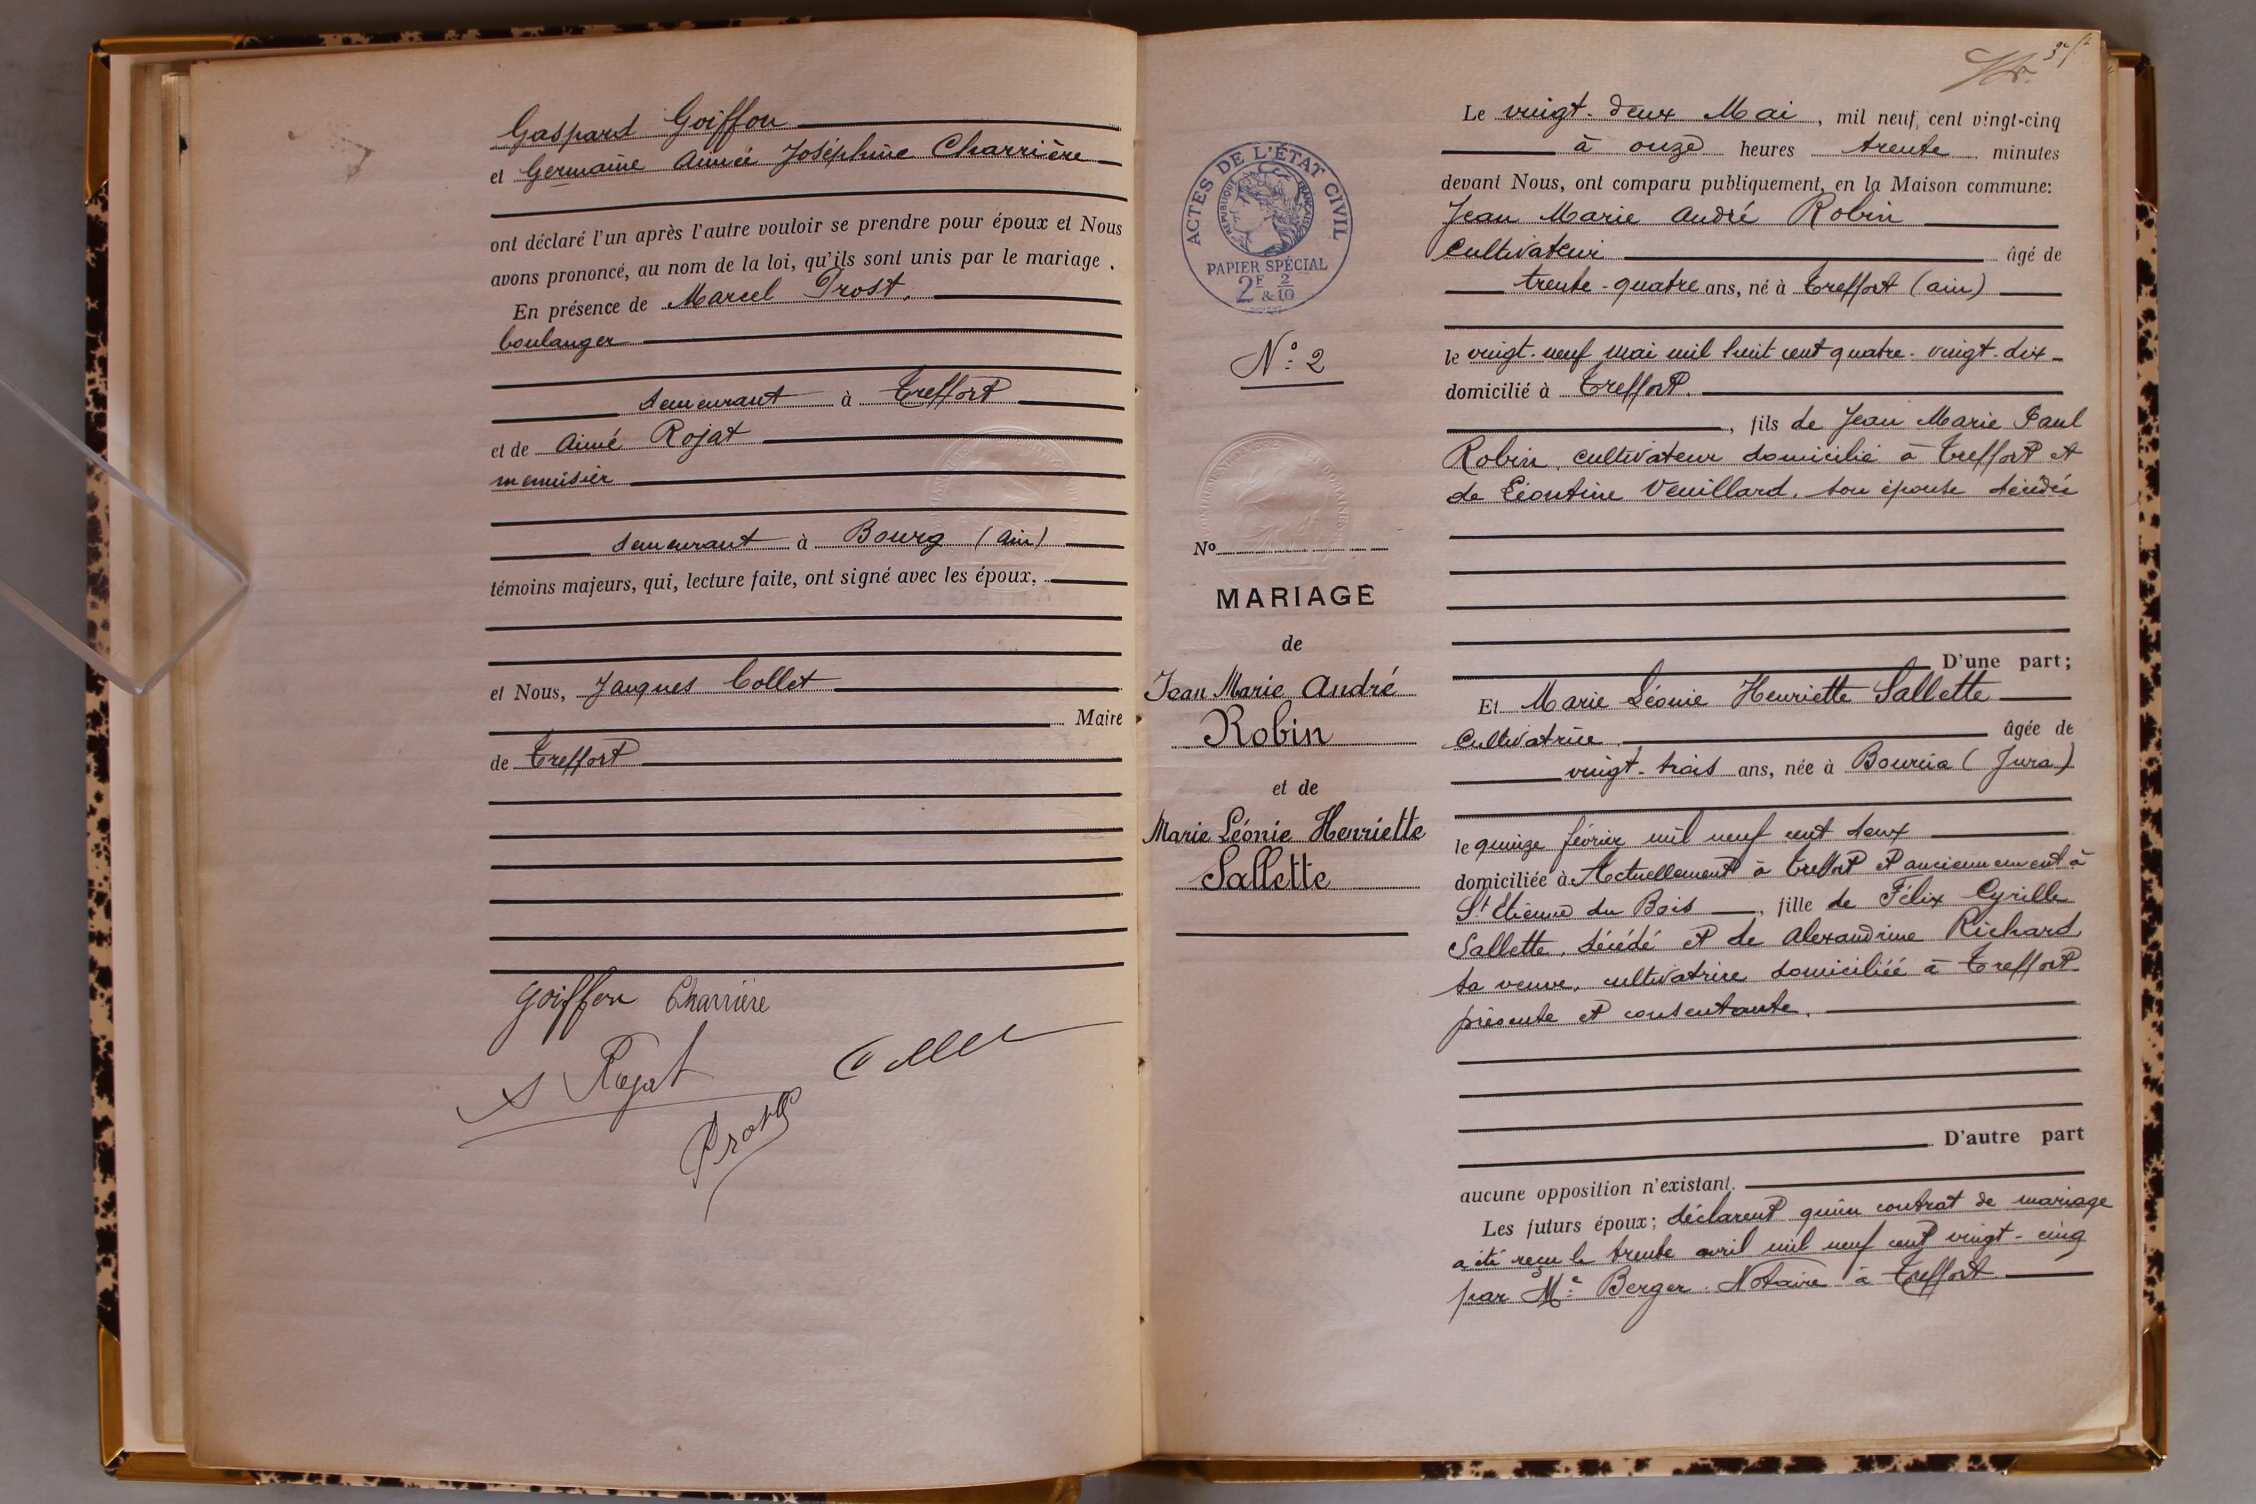 Gaspard Goiffon
et Germaine Aimée Joséphine Charrière
ont déclaré l'un après l'autre vouloir se prendre pour époux et Nous
avons prononcé, au nom de la loi, qu'ils sont unis par le mariage.
En présence de Marcel Prost,
boulanger
demeurant à Treffort
et de Aimé Rojat
menuisier
demeurant à Bourg (Ain)
témoins majeurs, qui, lecture faite, ont signé avec les époux,
et Nous, Jacques Collet
Maire
de Treffort
Goiffon Charrière
Rojat
Collet
Prost
ACTES DE L'ÉTAT CIVIL
RÉPUBLIQUE FRANÇAISE
PAPIER SPÉCIAL
2F & 2/10
No 2
No
MARIAGE
de
Jean Marie André
Robin
et de
Marie Léonie Henriette
Sallette
Le vingt-deux Mai, mil neuf cent vingt-cinq
à onze heures trente minutes
devant Nous, ont comparu publiquement, en la Maison commune:
Jean Marie André Robin
Cultivateur âgé de
trente-quatre ans, né à Treffort (Ain)
le vingt-neuf mai mil huit cent quatre-vingt-dix
domicilié à Treffort.
, fils de Jean Marie Paul
Robin, cultivateur domicilié à Treffort et
de Léontine Veuillard, son épouse décédée
D'une part;
Et Marie Léonie Henriette Sallette
Cultivatrice âgée de
vingt-trois ans, née à Bourcia (Jura)
le quinze février mil neuf cent deux
domiciliée à Actuellement à Treffort et anciennement à
St Etienne du Bois, fille de Félix Cyrille
Sallette, décédé et de Alexandrine Richard
sa veuve, cultivatrice domiciliée à Treffort
présente et consentante.
D'autre part
aucune opposition n'existant.
Les futurs époux; déclarent qu'un contrat de mariage
a été reçu le trente avril mil neuf cent vingt-cinq
par Me Berger Notaire à Treffort